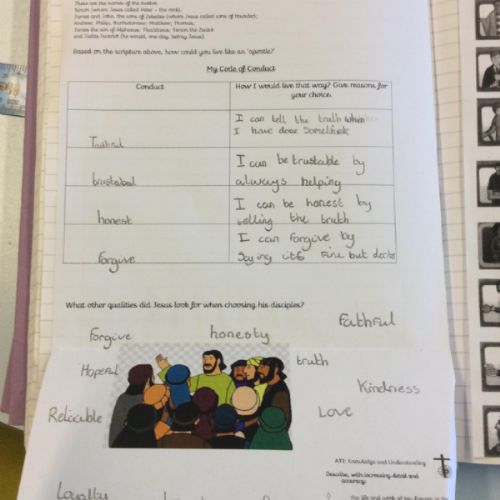 These are the names of the twelve:
Simon (whom Jesus called Peter – the rock),
James and John, the sons of Zebedee (whom Jesus called sons of thunder);
Andrew; Philip; Bartholomew; Matthew; Thomas;
James the son of Alphaeus; Thaddaeus; Simon the Zealot
and Judas Iscariot (he would, one day, betray Jesus).
Based on the scripture above, how could you live like an 'apostle?'
My Code of Conduct
Conduct
How I would live that way? Give reasons for
your choice.
I can tell the truth when
I have done
Truthful
I can be trustable by
trustabal
always helping
I can be honest by
honest
telling the truth
I can forgive by
forgive
Saying it's fine but
What other qualities did Jesus look for when choosing his disciples?
forgive
honesty
Faithful
Hopeful
truth
Kindness
Reliable
Love
AT1: Knowledge and Understanding
Describe, with increasing detail and
accuracy:
Loyalty
the life and work of